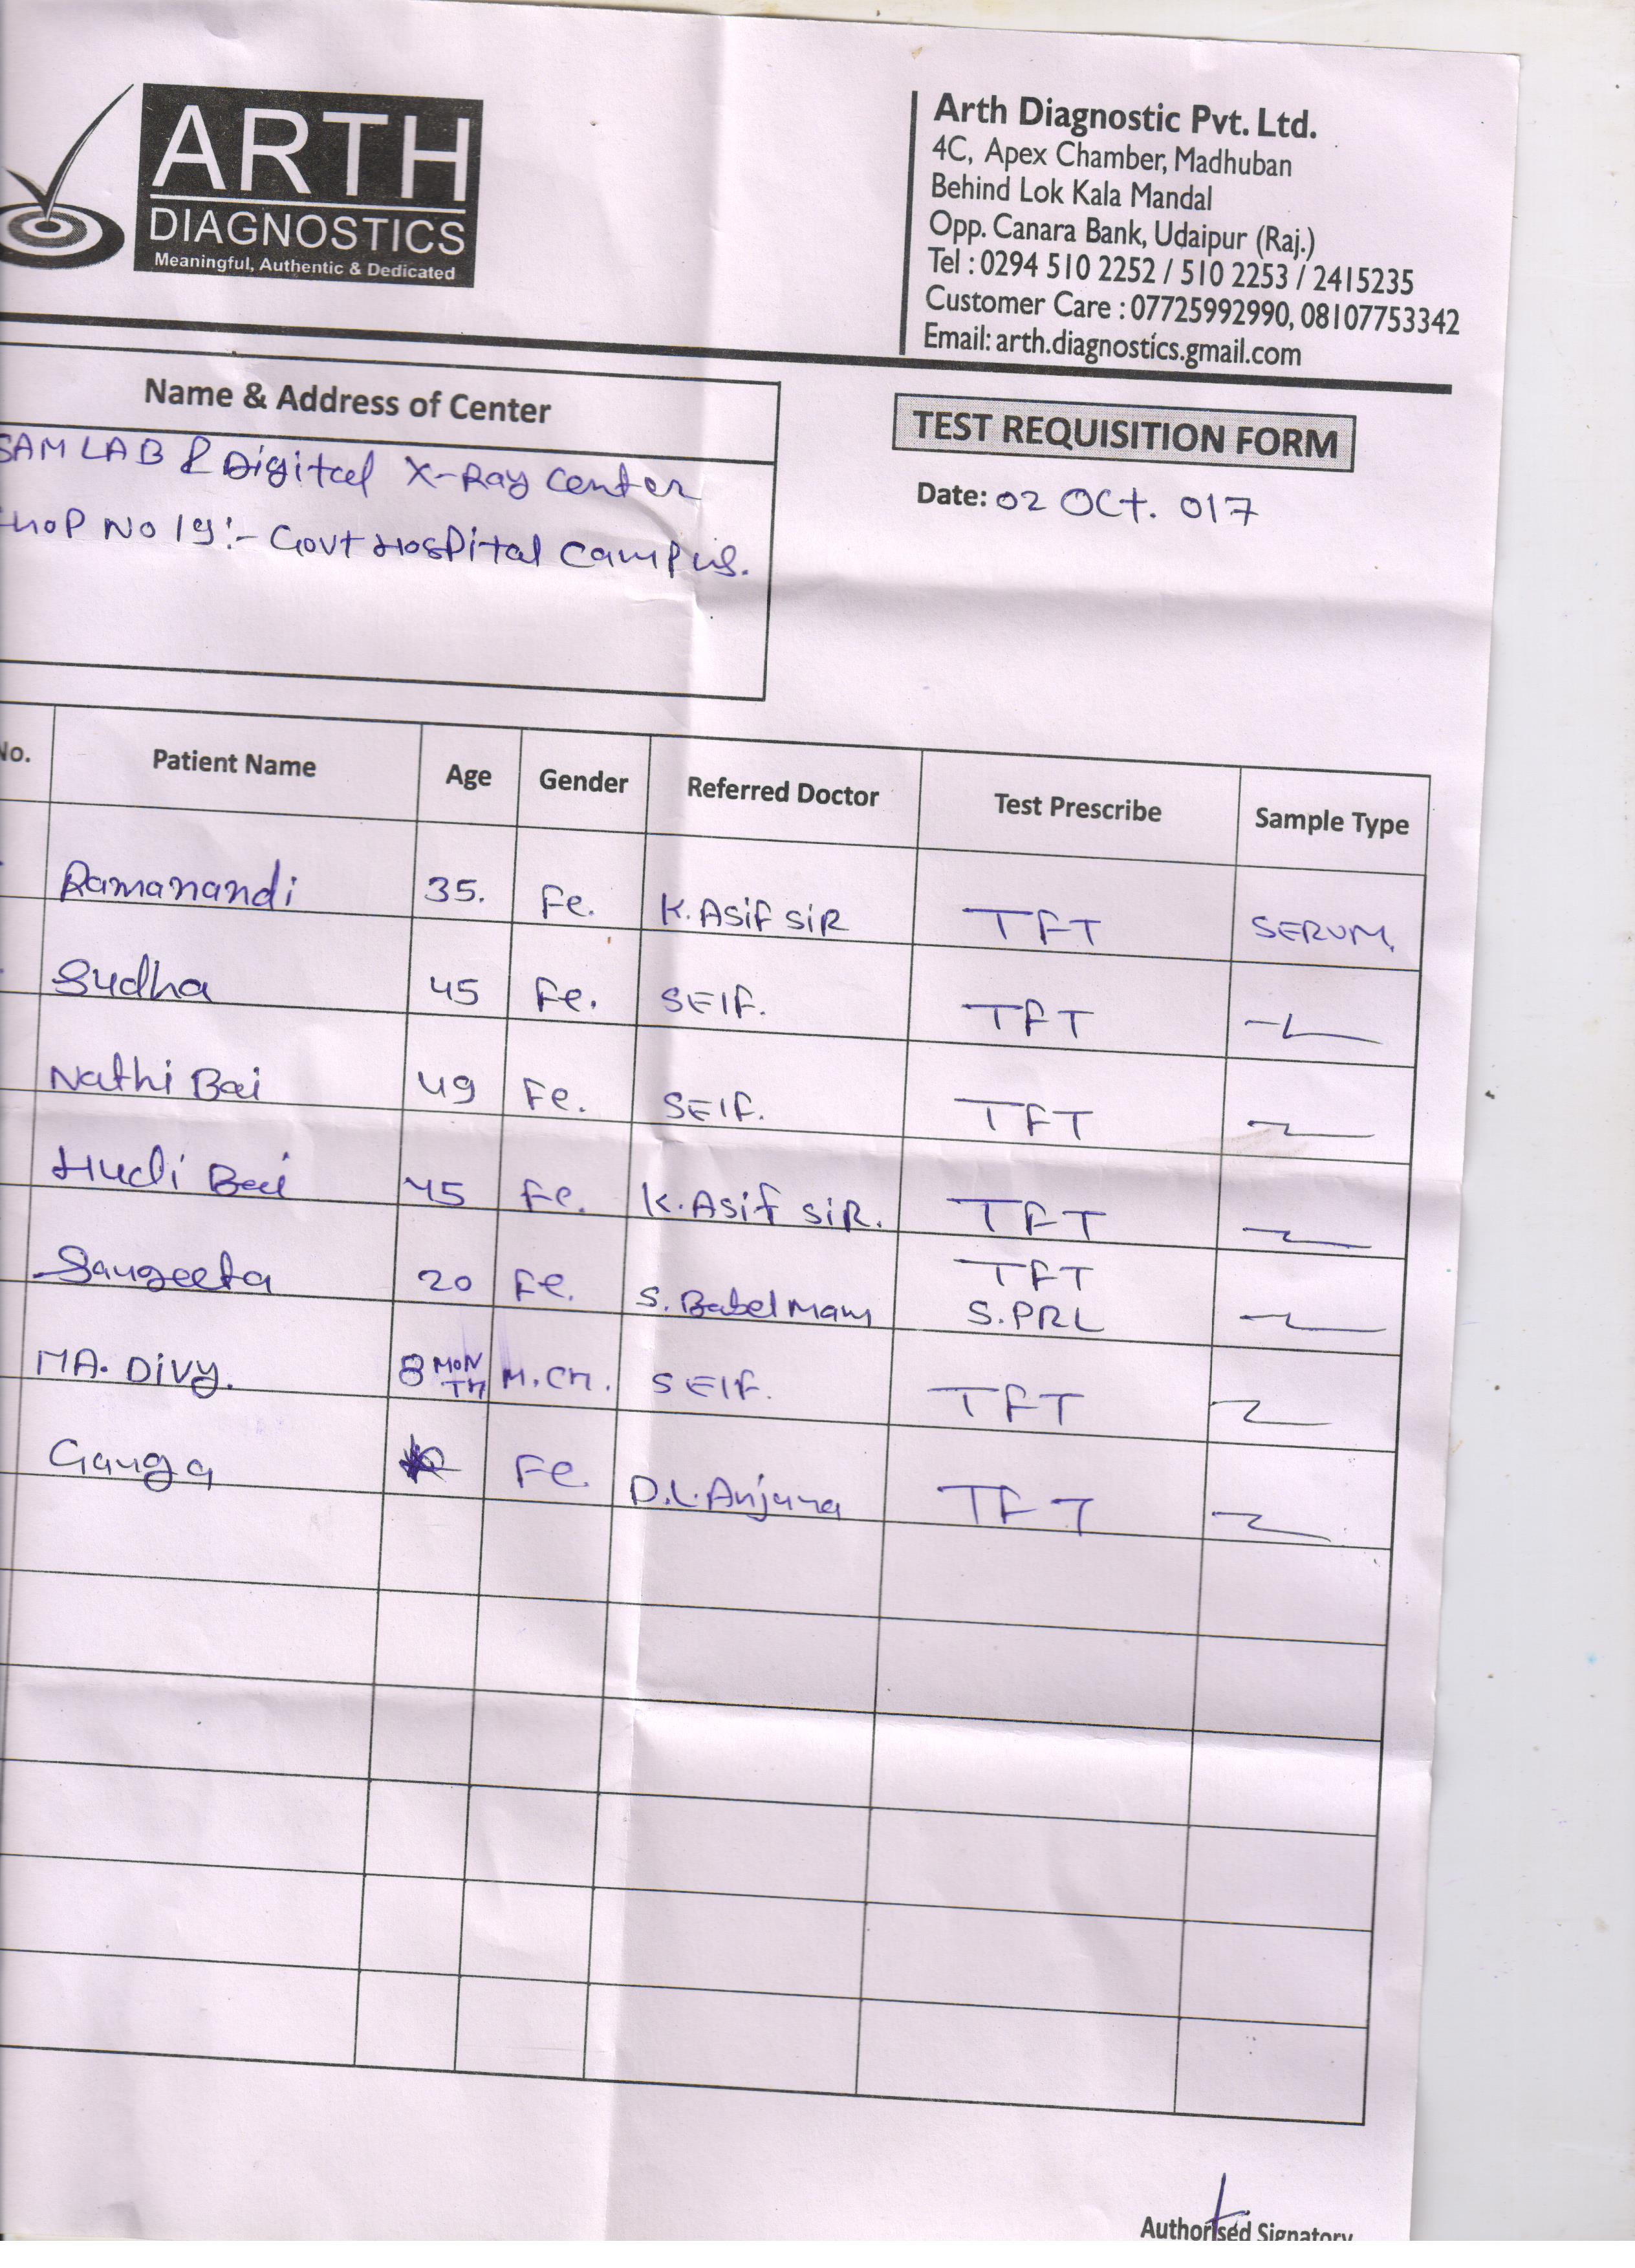 ARTH
DIAGNOSTICS
Meaningful, Authentic & Dedicated
Arth Diagnostic Pvt. Ltd.
4C, Apex Chamber, Madhuban
Behind Lok Kala Mandal
Opp. Canara Bank, Udaipur (Raj.)
Tel : 0294 510 2252 / 510 2253 / 2415235
Customer Care : 07725992990, 08107753342
Email: arth.diagnostics.gmail.com
Name & Address of Center
SAM LAB & Digital X-Ray Center
SHOP NO 19:- Govt Hospital Campus.
TEST REQUISITION FORM
Date: 02 Oct. 017
No. Patient Name Age Gender Referred Doctor Test Prescribe Sample Type
Ramanandi 35. Fe. K. Asif SiR TFT SERUM.
Sudha 45 Fe. SElf. TFT
Nathi Bai 49 Fe. SElf. TFT
Hudi Bai 45 Fe. K. Asif SiR. TFT
Sangeeta 20 Fe. S. Babel Mam TFT
S. PRL
MA. Divy. 8 MONTH M.CH. SElf. TFT
Ganga Fe. D.L. Anjana TFT
Authorised Signatory